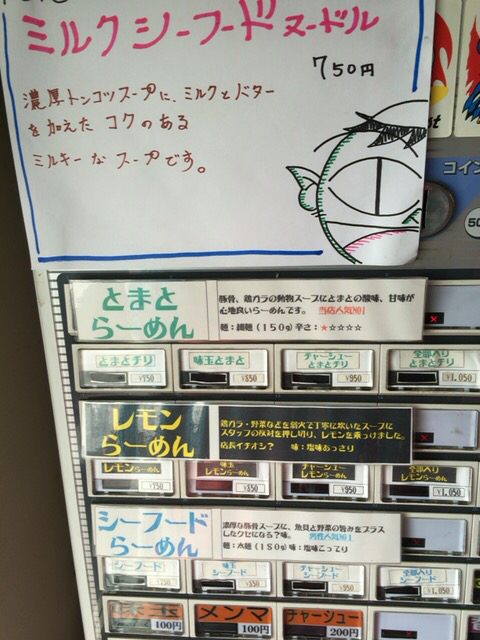 ミルクシーフードヌードル
750円
濃厚トンコツスープに、ミルクとバター
を加えた コクのある
ミルキーなスープです。
コイン
とまと
らーめん
豚骨、鶏ガラの動物スープにとまとの酸味、甘味が
心地良いらーめんです。 当店人気NO1
麺:細麺(150g)辛さ:★☆☆☆☆
とまとチリ
¥750
味玉とまと
¥850
チャーシュー
とまとチリ
¥950
全部入り
とまとチリ
¥1,050
レモン
らーめん
鶏ガラ・野菜などを弱火で丁寧に炊いたスープに
スタッフの反対を押し切り、レモンを乗っけました。
店長イチオシ? 味:塩味あっさり
レモンらーめん
¥750
味玉
レモンらーめん
¥850
チャーシュー
レモンらーめん
¥950
全部入り
レモンらーめん
¥1,050
シーフード
らーめん
濃厚な豚骨スープに、魚貝と野菜の旨みをプラス
したクセになる?味。 男性人気NO1
麺:太麺(180g)味:塩味こってり
シーフード
¥750
味玉
シーフード
¥850
チャーシュー
シーフード
¥950
全部入り
シーフード
¥1,050
味玉
100円
メンマ
100円
チャーシュー
200円